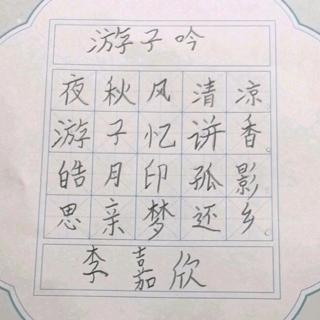 游子吟
夜秋风清凉
游子忆饼香。
皓月印孤影
思亲梦还乡。
李嘉欣